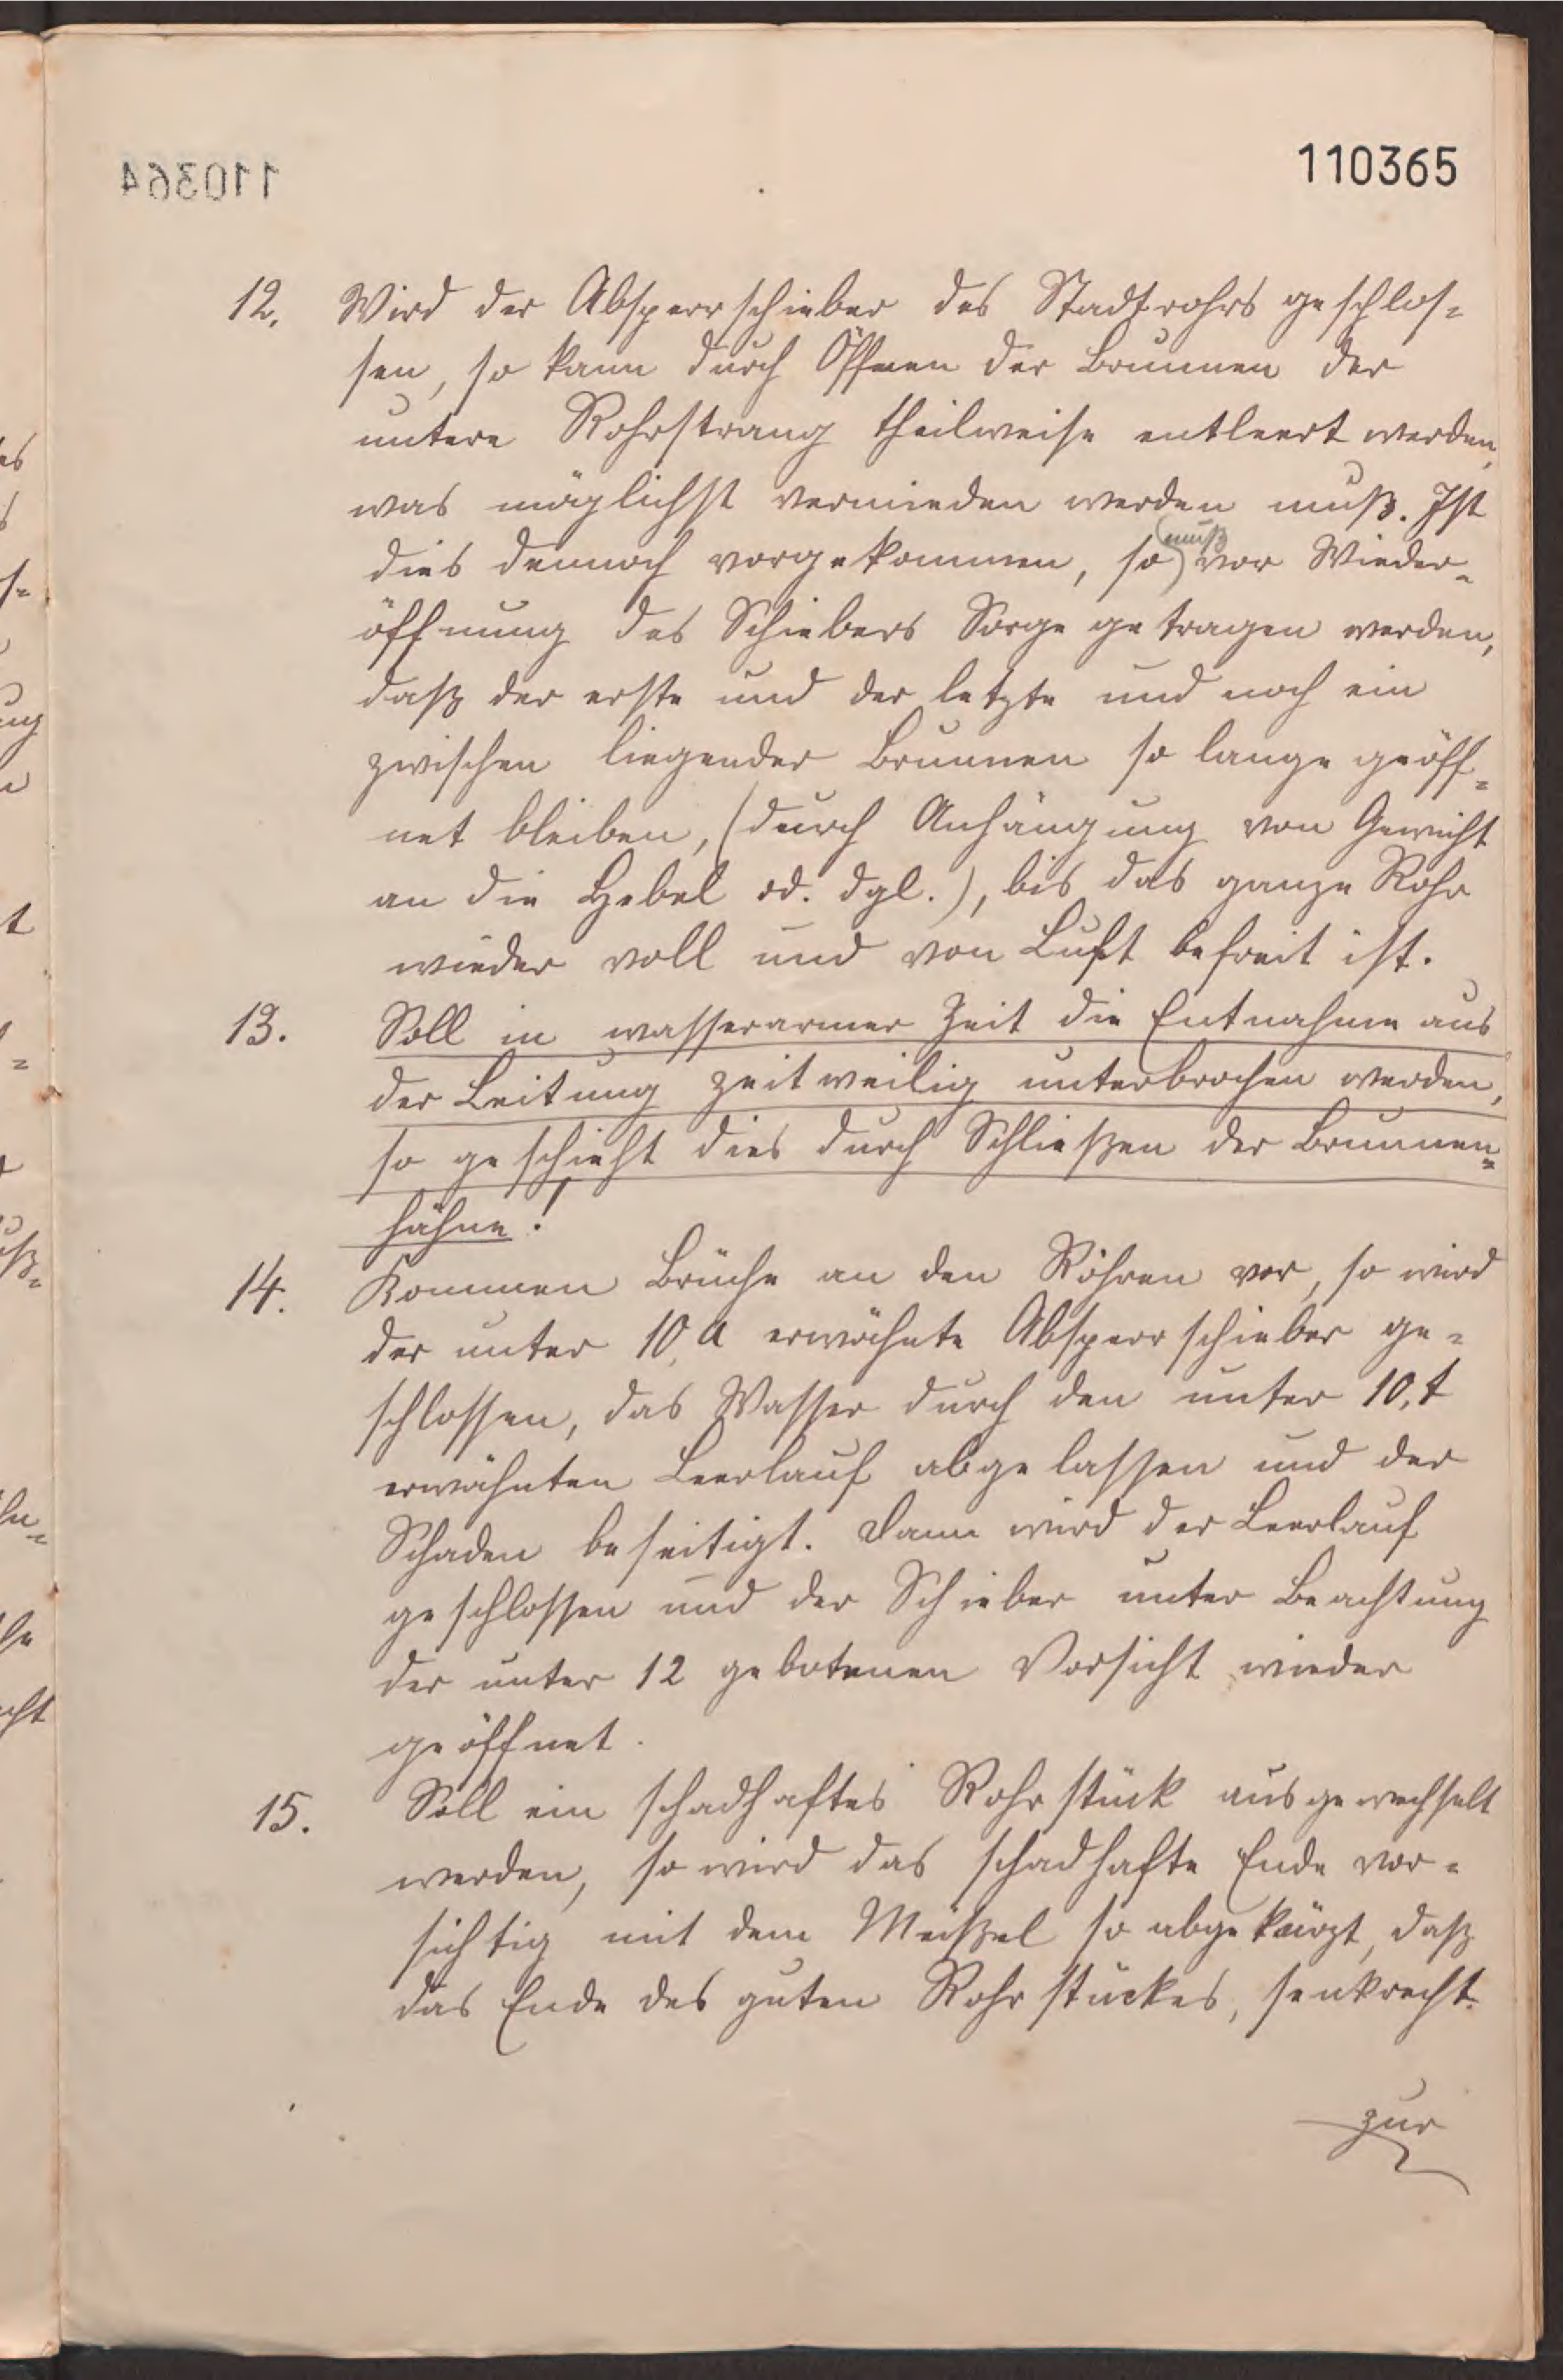 110365
12. Wird der Absperrschieber des Stadtrohrs geschlos-
sen, so kann durch Öffnen der Brunnen der
untere Rohrstrang theilweise entleert werden,
was möglichst vermieden werden muß. Ist
dies dennoch vorgekommen, so muß vor Wieder-
öffnung des Schiebers Sorge getragen werden,
daß der erste und der letzte und noch ein
zwischen liegender Brunnen so lange geöff-
net bleiben, (durch Anhängung von Gewicht
an die Hebel od. dgl.), bis das ganze Rohr
wieder voll und von Luft befreit ist.
13. Soll in wasserarmer Zeit die Entnahme aus
der Leitung zeitweilig unterbrochen werden,
so geschieht dies durch Schließen der Brunnen-
hähne!
14. Kommen Brüche an den Röhren vor, so wird
der unter 10,a erwähnte Absperrschieber ge-
schlossen, das Wasser durch den unter 10,t
erwähnten Leerlauf abgelassen und der
Schaden beseitigt. Dann wird der Leerlauf
geschlossen und der Schieber unter Beachtung
der unter 12 gebotenen Vorsicht wieder
geöffnet.
15. Soll ein schadhaftes Rohrstück ausgewechselt
werden, so wird das schadhafte Ende vor-
sichtig mit dem Meißel so abgekürzt, daß
das Ende des guten Rohrstückes, senkrecht
zur